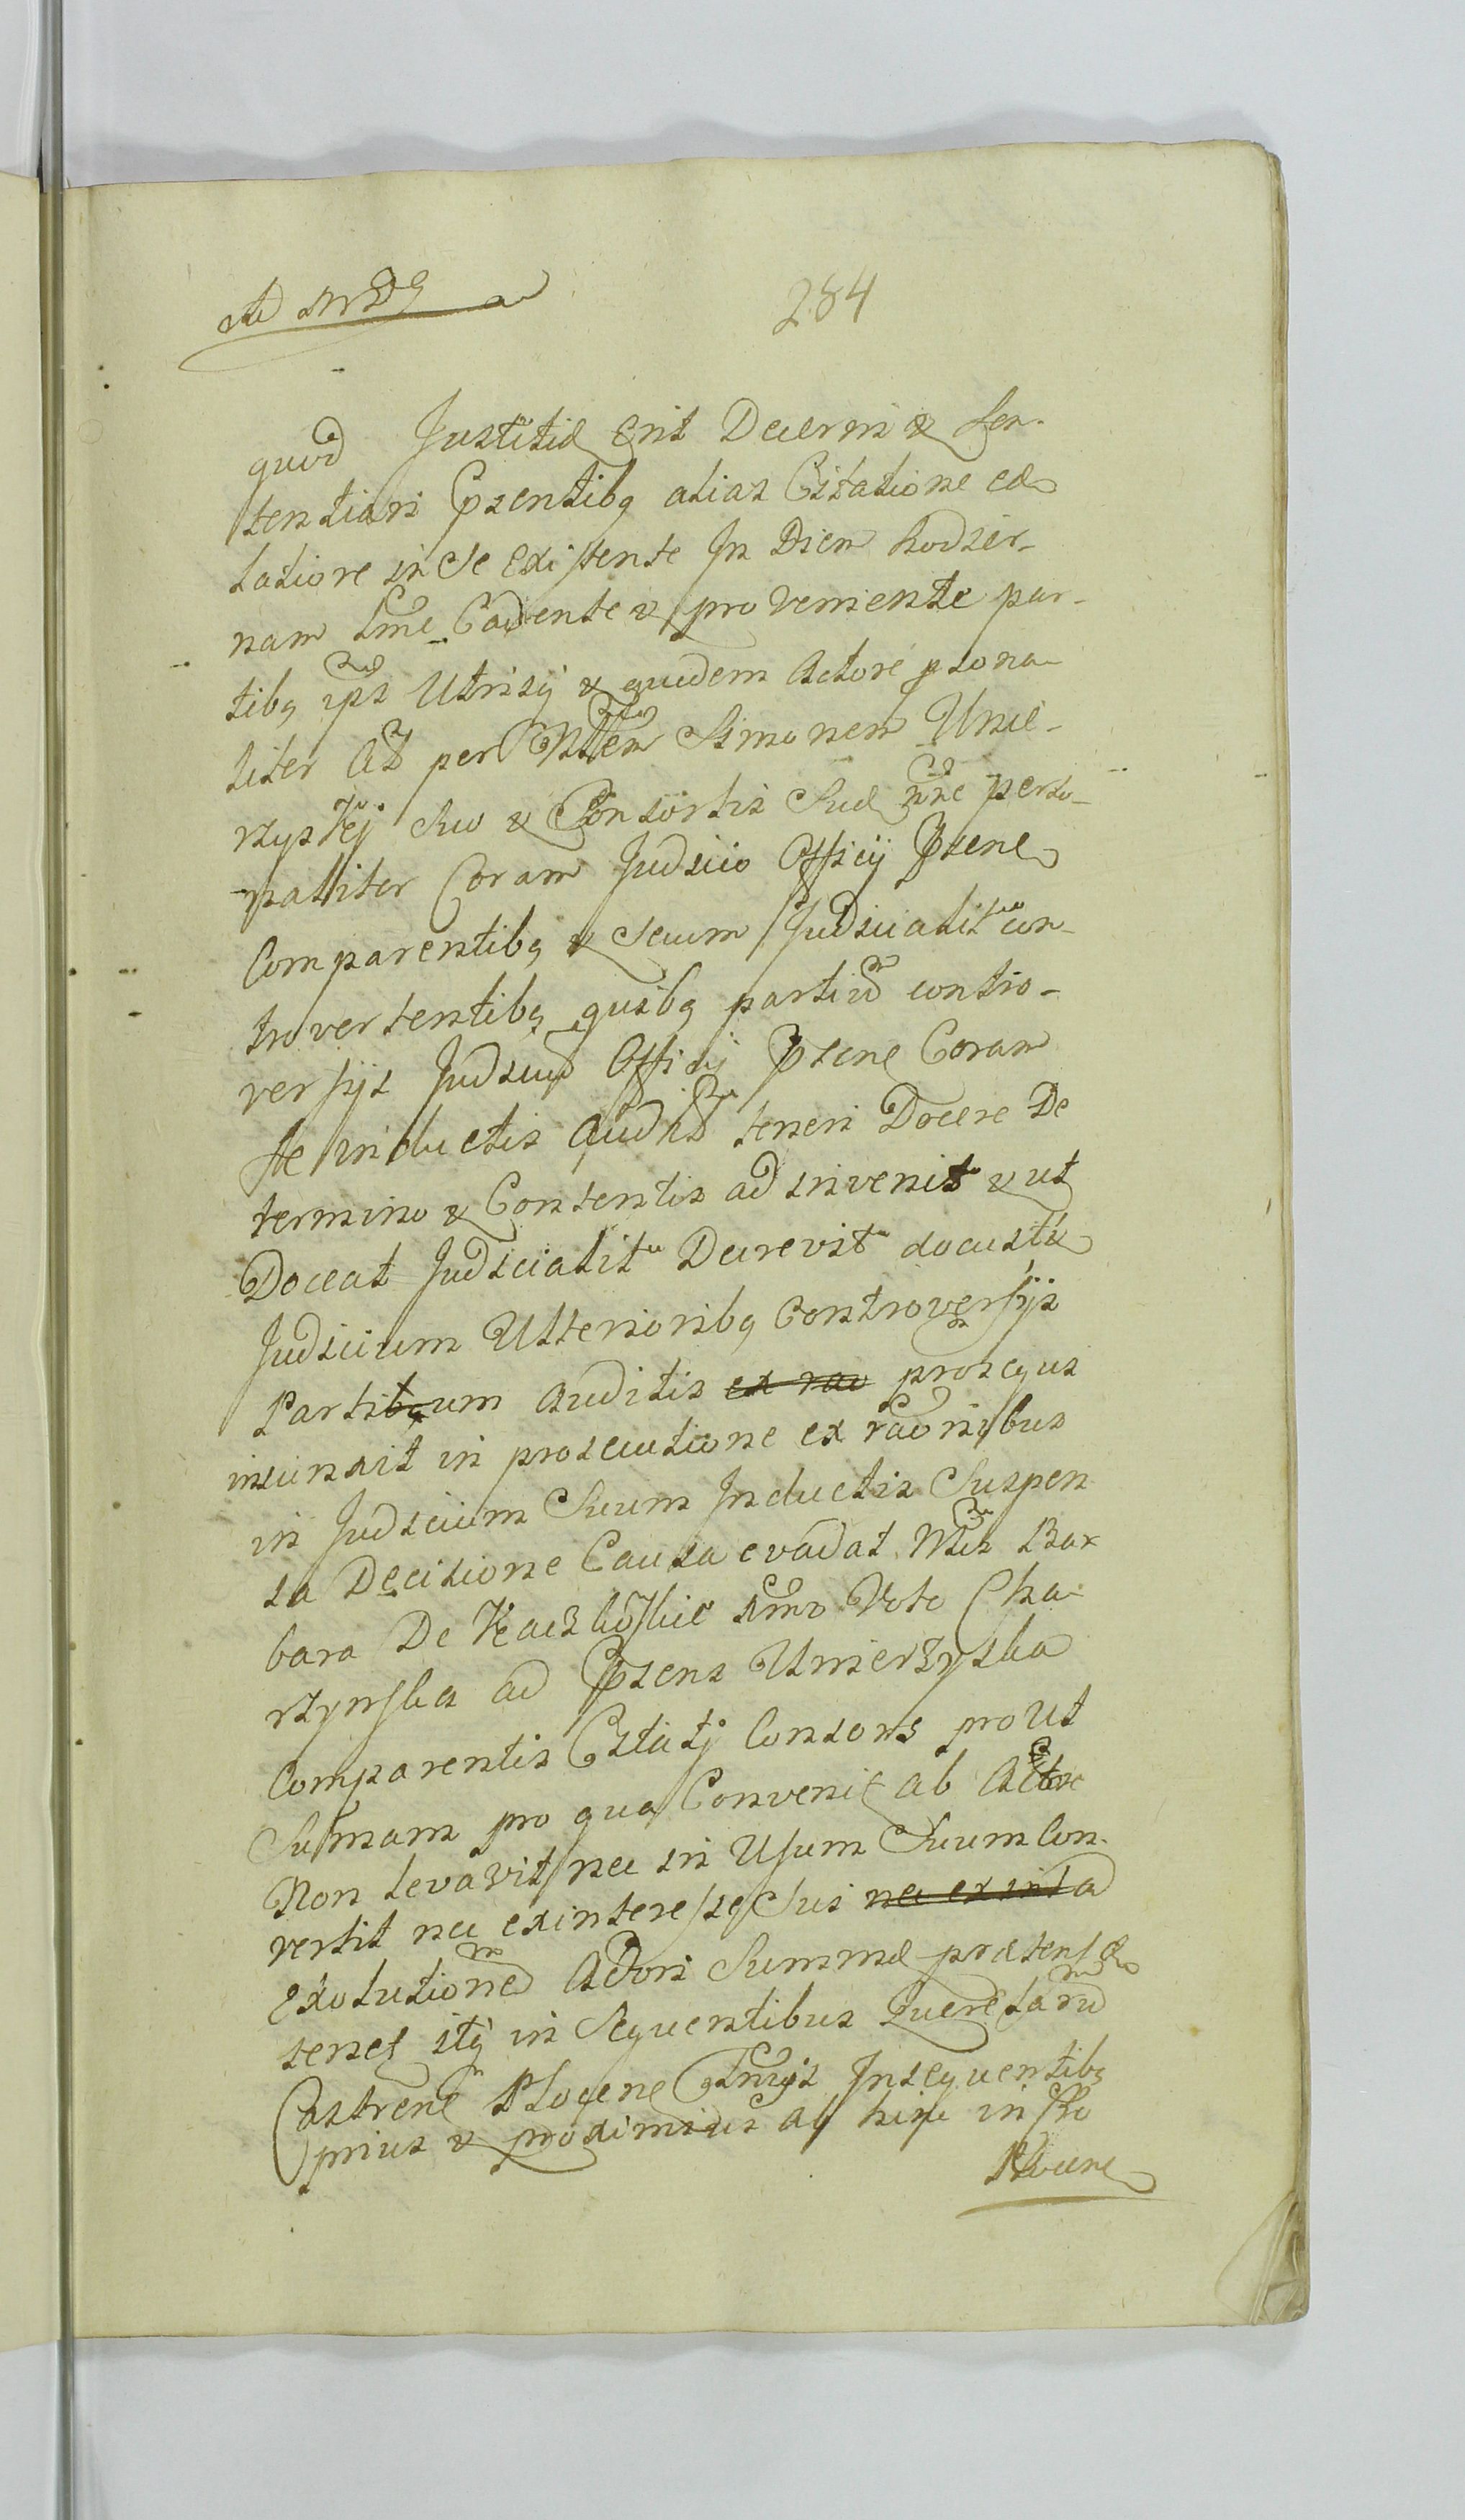 Ad MDG
284
quod Justitiæ Erit Decerni & Sen-
tentiari Pntibq alias Citatione ea
latiore in Se Existente In Diem hodier-
nam Lme Cadente & proveniente par-
tibq ipis Utrisq & quidem Actore psona-
liter Ad per Simonem Unie-
rzyskj Suo & Consortis Suæ nne perso-
naliter Coram Judicio Officij Psene
Comparentibq & Secum Judicialitr con-
trovertentibq quibq partiu contro-
versijs Judiciu Officij Psene Coram
Se inductis Audits teneri Docere De
termino & Contentis adinvenit & ut
Doceat Judicialitr Decrevit docustu
Judicium Ulterioribq Controversijs
Partibqum Auditis ex rao prosequi
iniunxit in prosecutione ex raonibus
in Judicium Suum Inductis Suspen
sa Decisione Causa evadat Mcis Bar
bara De Kaczkoskie 1mo Voto Cha-
rzynska ad Psens Unierzyska
Comparentis Citatj Consors prout
Sumam pro qua Convenit ab Actore
Non Levavit nec in Usum Suum Con-
vertit nec exinteresse Sui nec ex inta
Exolutionē Actori Summæ prætensæ
tenet itq in Sequentibus Querelarū
Castrenē Plocene Tmis Insequentibq
prius & proximius ab hinc in Fro
Plocene